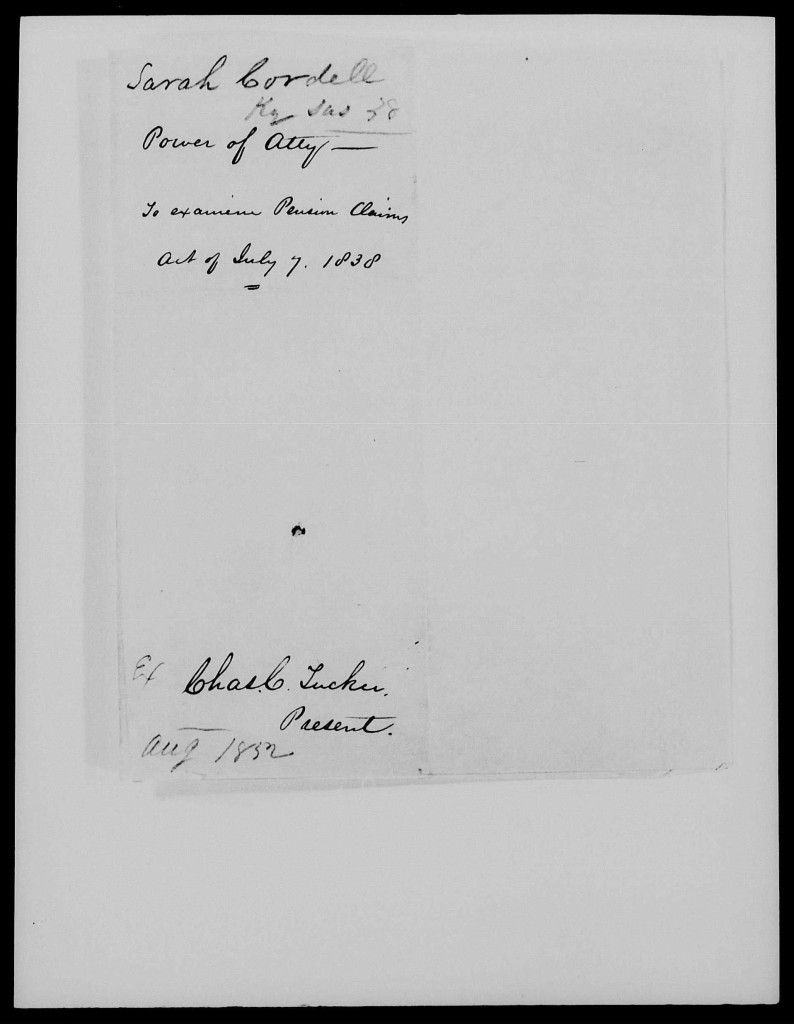 Sarah Cordell
Ky 38
Power of Atty —
To examine Pension Claims
Act of July 7. 1838
Ex Chas. C. Tucker.
Present.
Aug 1852